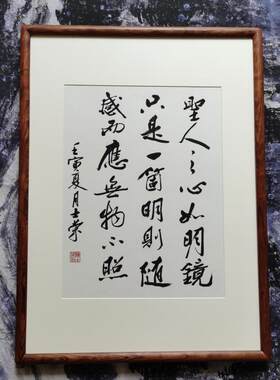 聖人之心如明鏡
只是一箇明則隨
感而應無物不照
壬寅夏月士榮